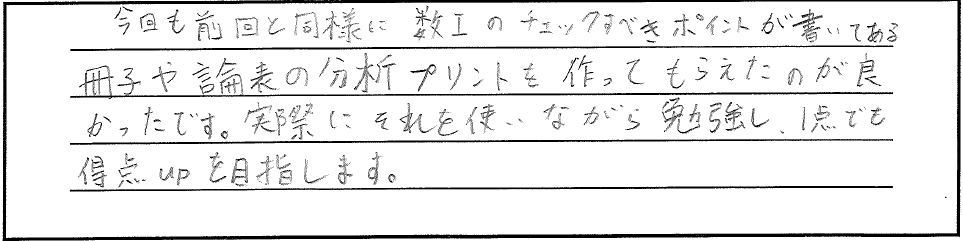 今回も前回と同様に数Iのチェックすべきポイントが書いてある
冊子や論表の分析プリントを作ってもらえたのが良
かったです。実際にそれを使いながら勉強し、1点でも
得点upを目指します。